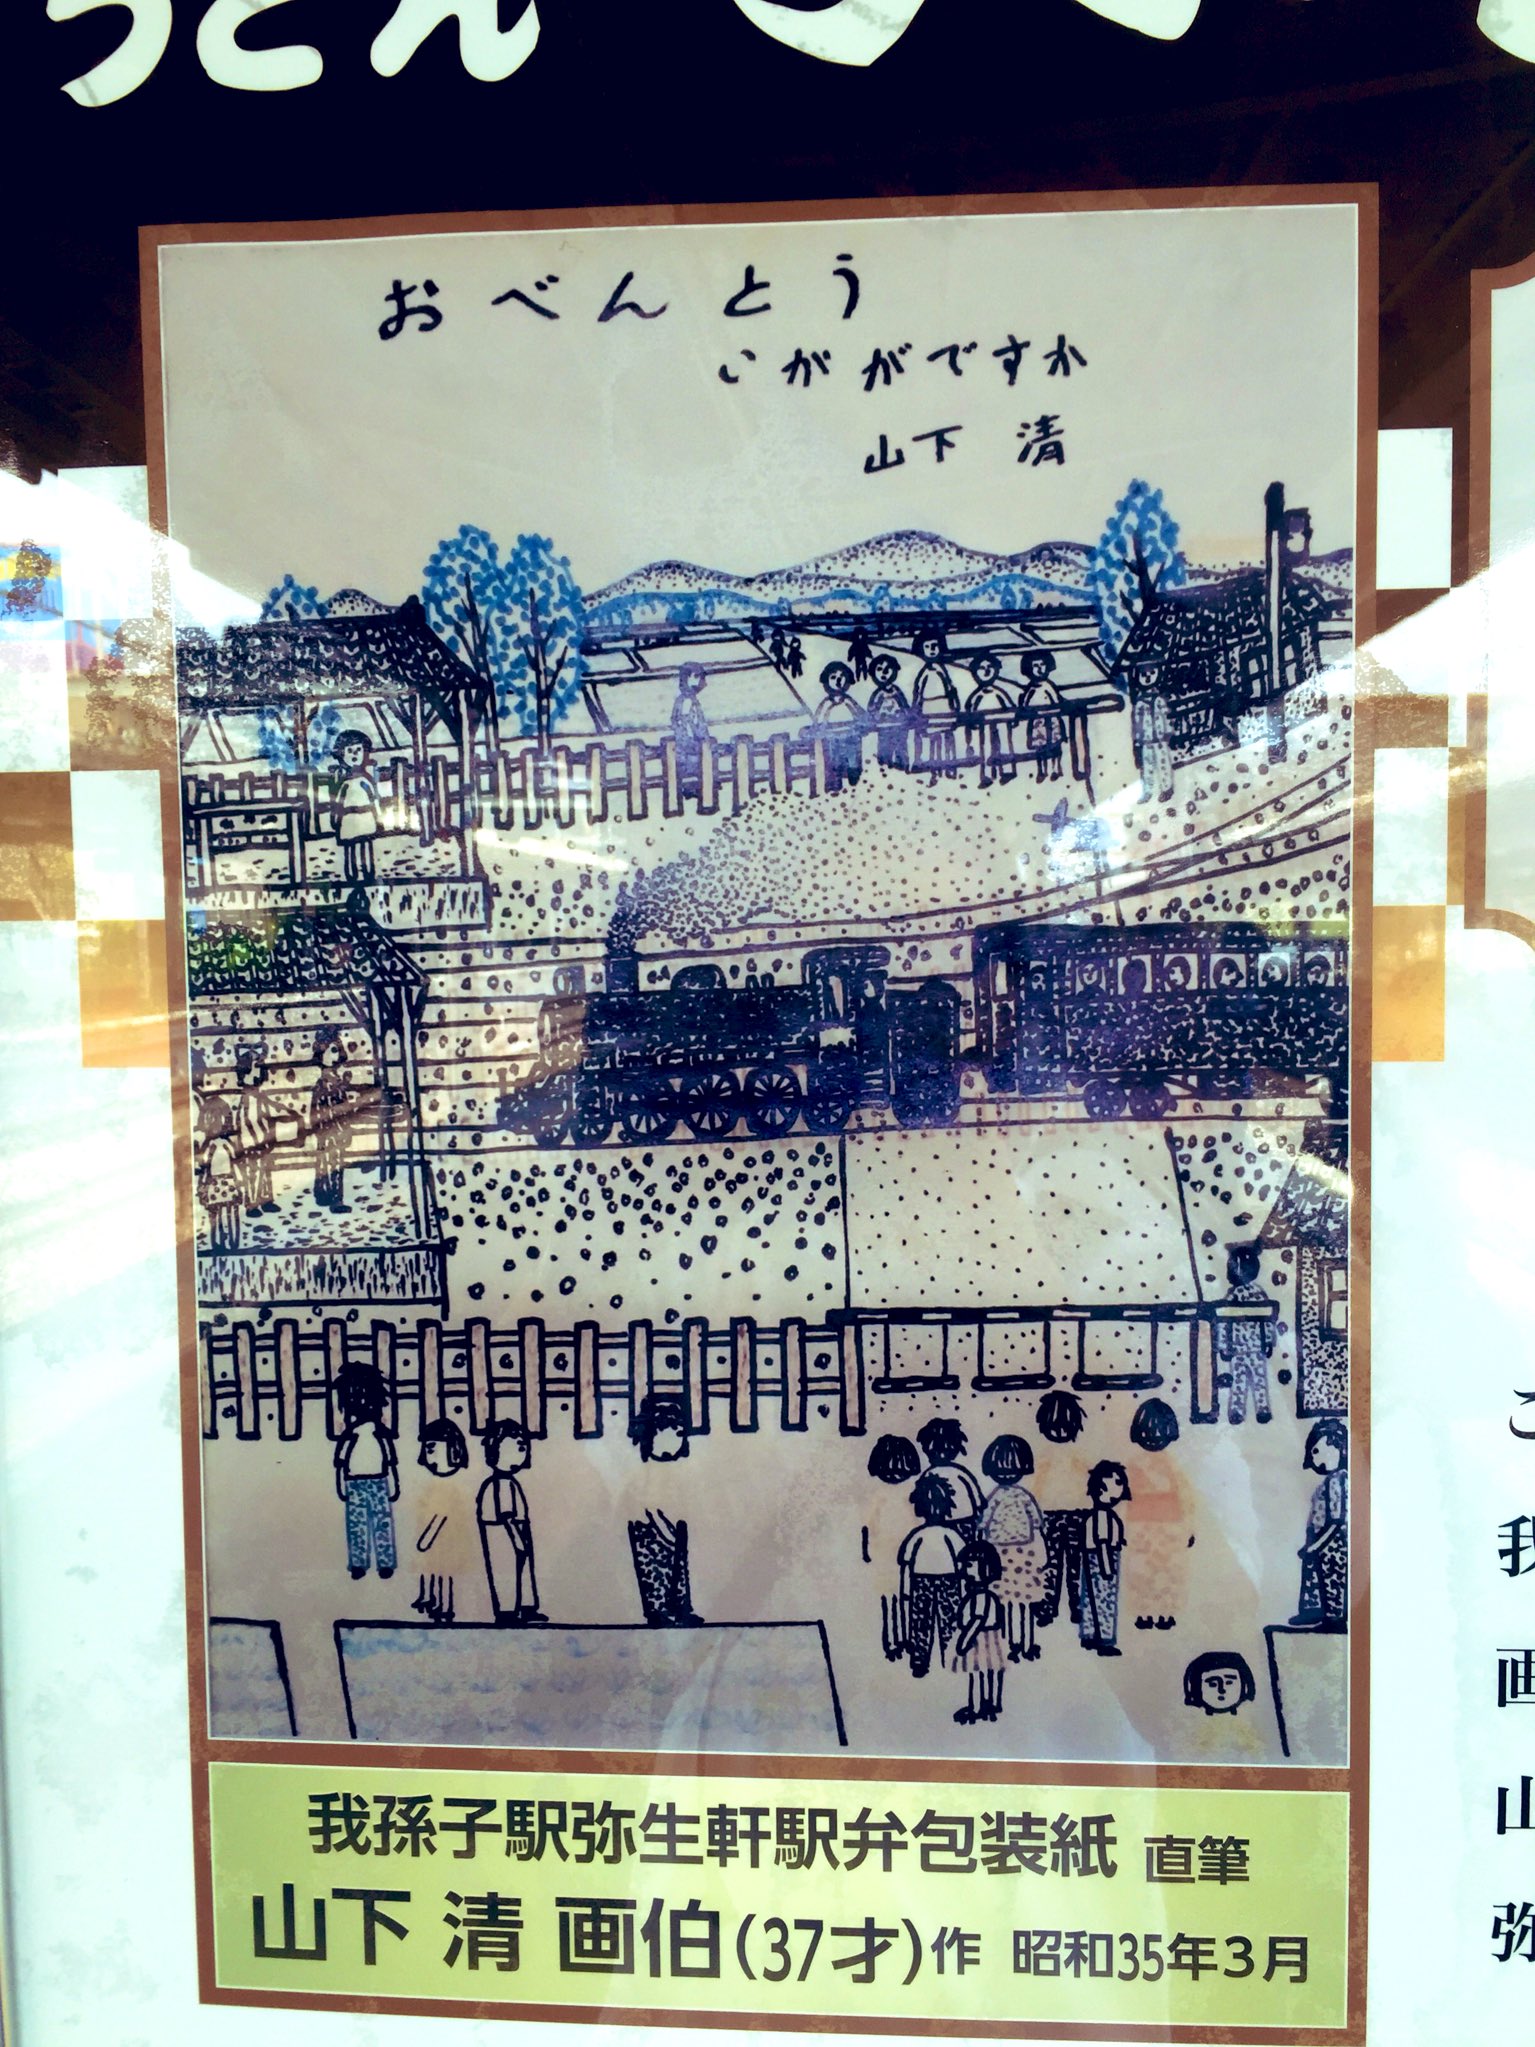 うどん
おべんとう
いががですか
山下 清
我孫子駅弥生軒駅弁包装紙 直筆
山下 清 画伯(37才)作 昭和35年3月
我
画
山
弥